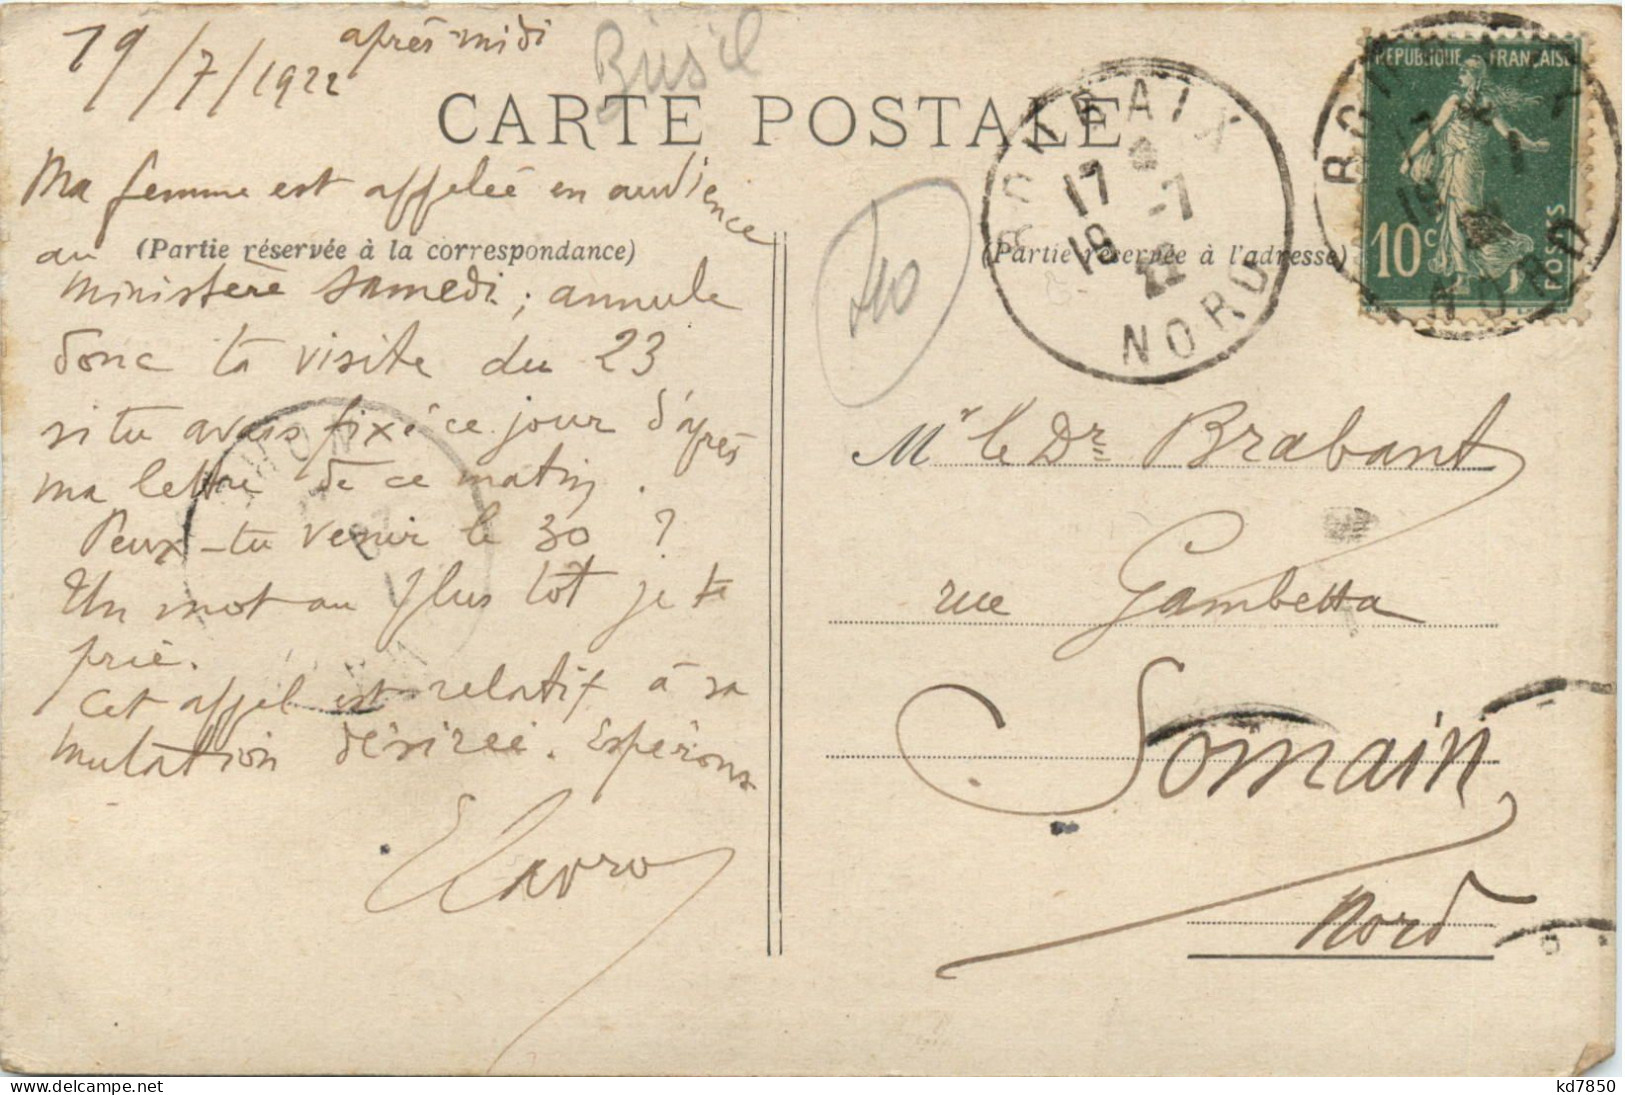 19/7/1922 après midi
Brésil
CARTE POSTALE
Ma femme est appeleé en audience
au (Partie réservée à la correspondance)
ministère samedi ; annule
donc ta visite du 23
si tu avais fixé ce jour d'après
ma lettre de ce matin .
Peux-tu venir le 30 ?
Un mot au plus tot je te
prie.
Cet appel est relatif à sa
mutation désirée . Espérons
ROUBAIX
17 -7
19 22
NORD
(Partie réservée à l'adresse)
REPUBLIQUE FRANÇAISE
10c POSTES
ROUBAIX
17 -7
19
NORD
Mr le Dr Brabant
rue Gambetta
Somain
Nord
kd7850